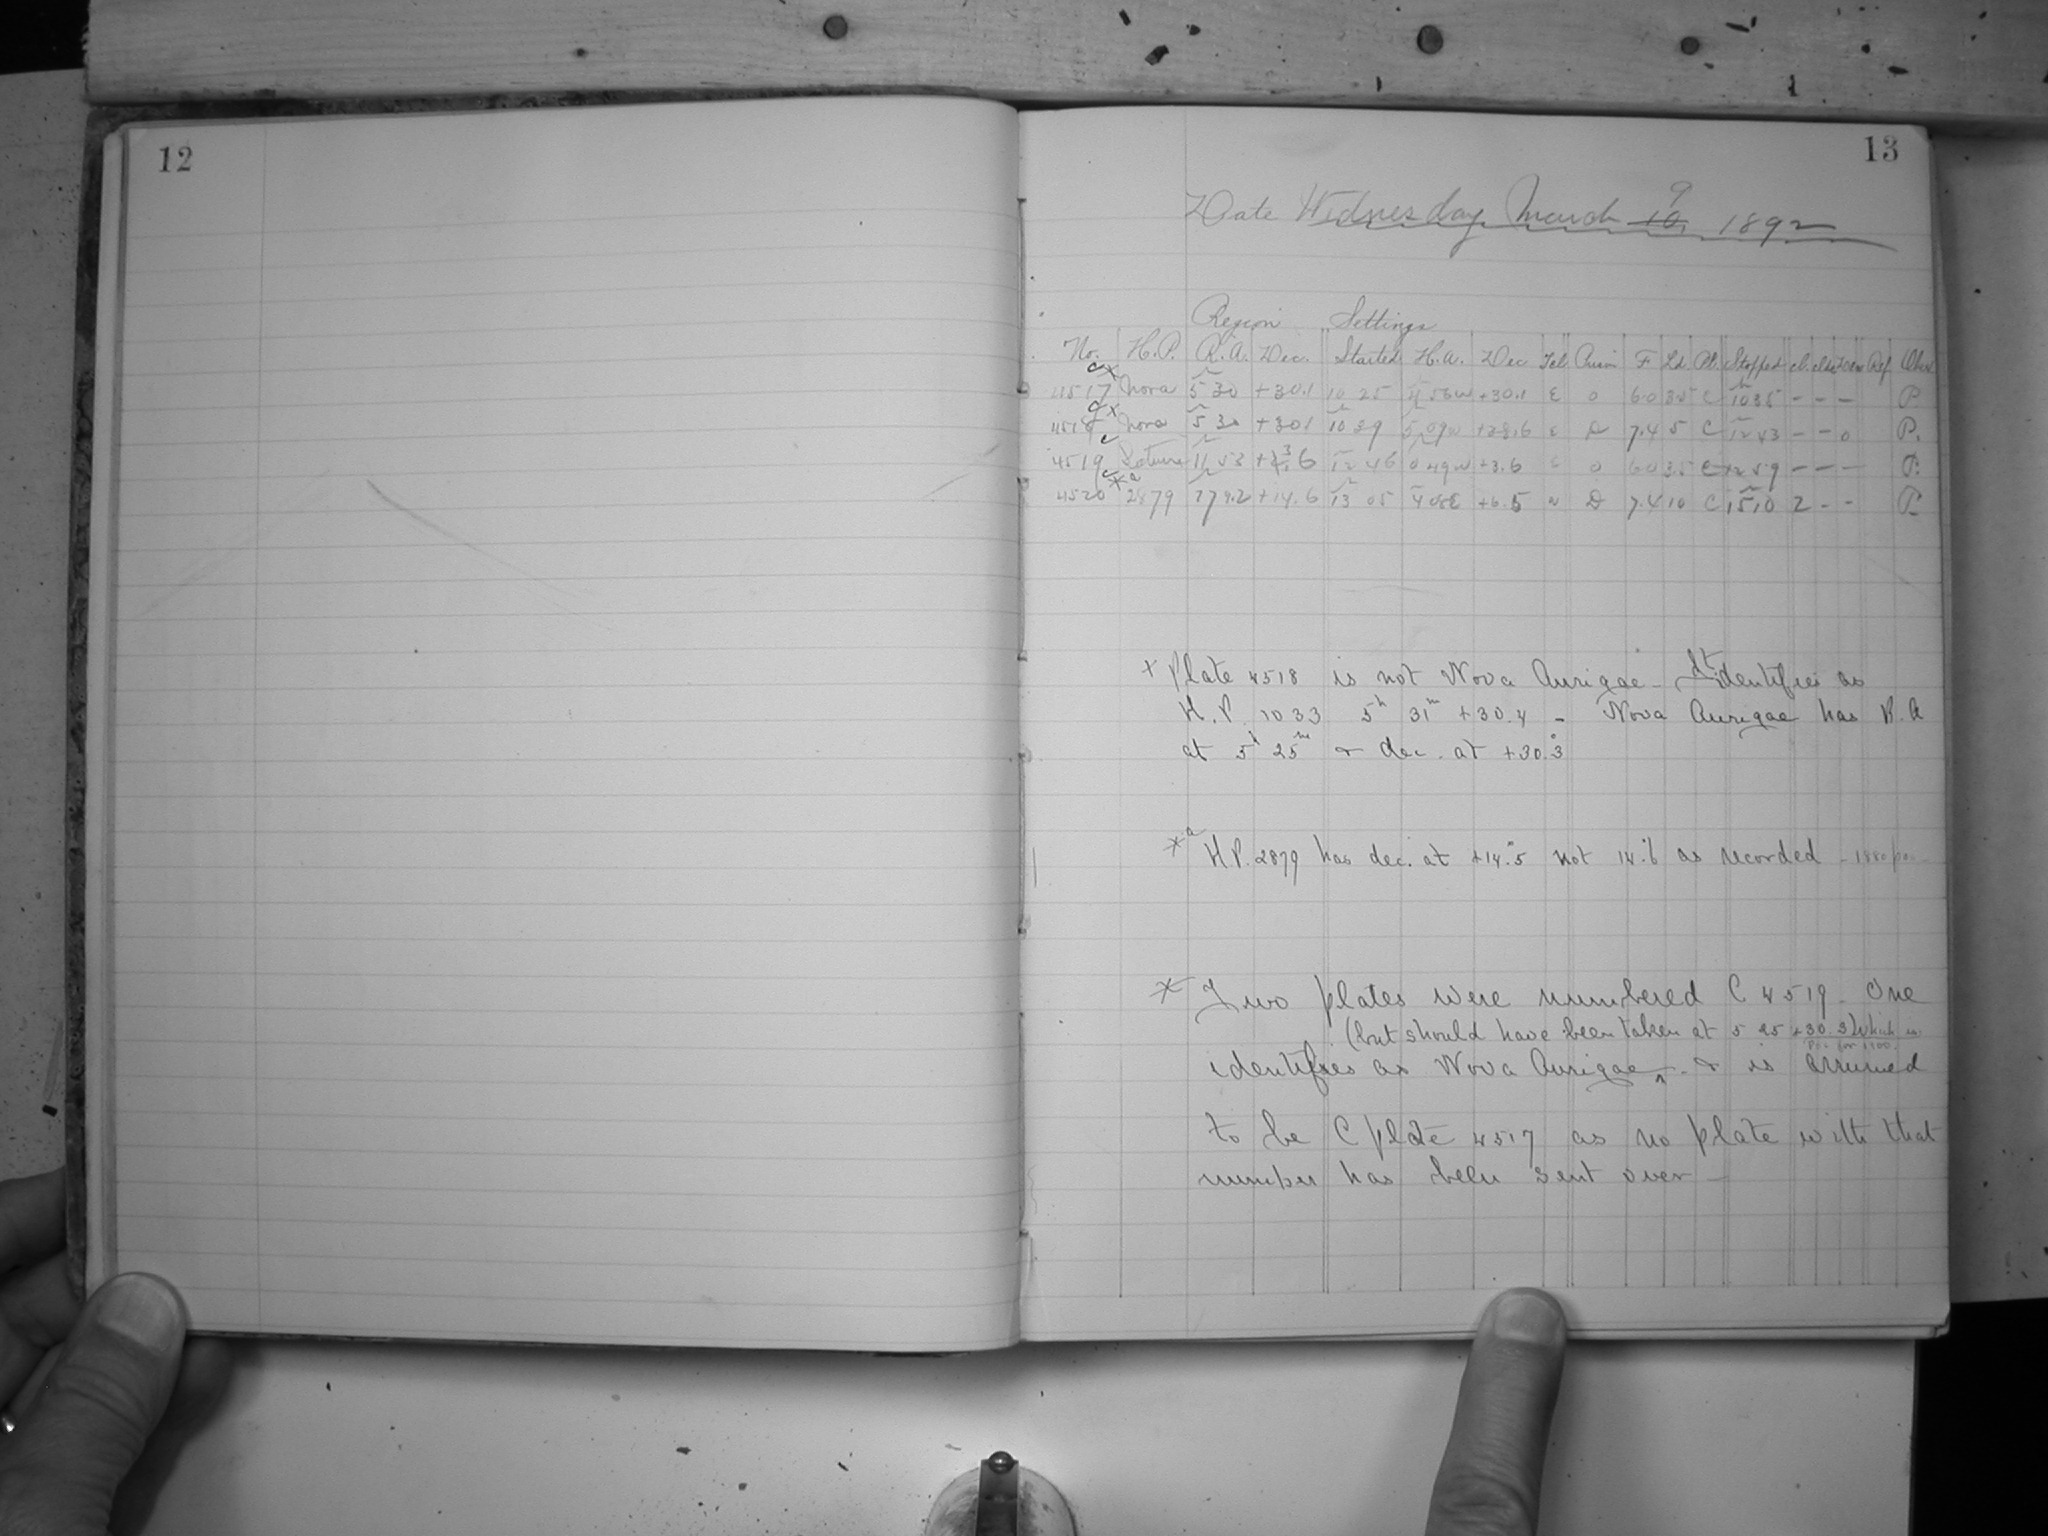 12
13
Date Wednesday March 10 9 1892
Region Settings
No. H.P. R.A. Dec. Started H.A. Dec Tel F Ld. Pl. Stopped Cl. Ref Obs.
4517 Nova 5 30 +30.1 10 25 4 56w +30.1 E 0 60 35 C 10 35 - - - P
4518 Nova 5 30 +30.1 10 39 5 09w +28.6 E D 7.4 5 C 12 43 - - 0 P.
4519 Saturn 11 53 +3.6 12 46 0 49w +3.6 E 0 60 35 C 12 59 - - - P.
4520 2879 17 9.2 +14.6 13 05 4 08E +6.5 w D 7.4 10 C 15 10 2 - - P
+ Plate 4518 is not Nova Aurigae - It identifies as
H.P. 1033 5h 31m +30.4 - Nova Aurigae has R.A
at 5h 25m & dec. at +30.°3
*a H.P. 2879 has dec. at +14.°5 not 14.°6 as recorded - 1880
* Two plates were numbered C 4519. One
(but should have been taken at 5 25 +30.3) which is
identifies as Nova Aurigae ^ - & is assumed
to be C plate 4517 as no plate with that
number has been sent over -